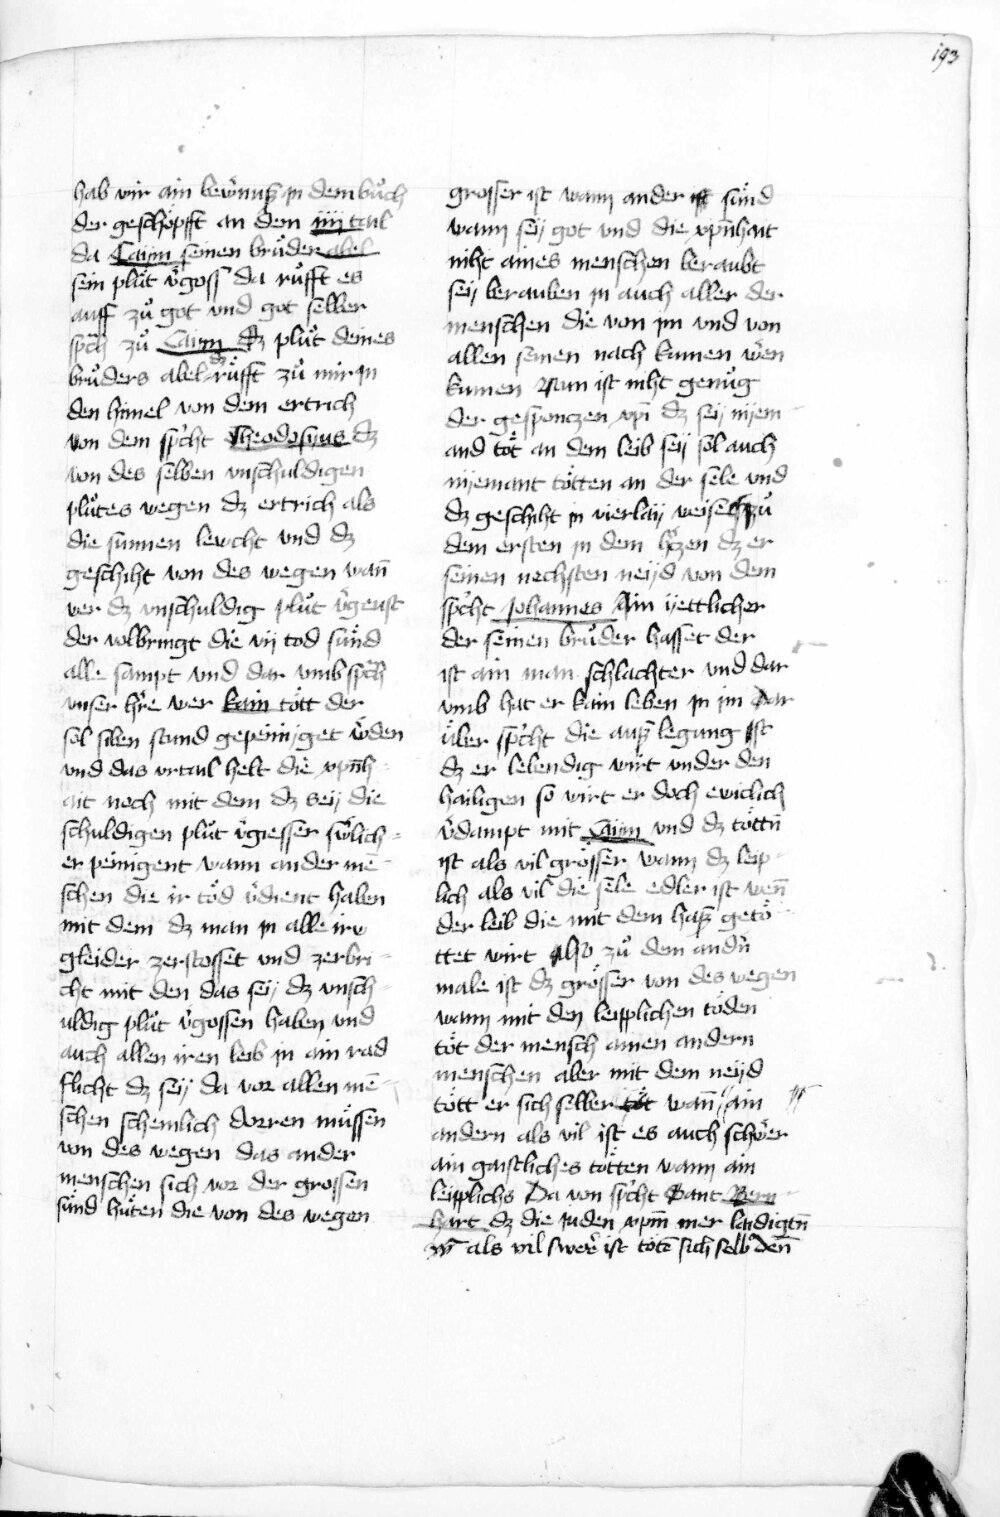 193
hab wir ain bewerniß in dem buͦch
der geschöpfft an dem iiij tail
da Caijm seinen bruͦder abel
sein pluͦt v̈goss da ruͤfft es
auff zuͦ got vnd got selber
sp̈ch zuͦ Caijm Dz pluͦt deines
bruͦders abel dz ruͤfft zuͦ mir in
den himel von dem ertrich
von dem sp̈cht Theodosyus dz
von des selben vnschuldigen
pluͦtes wegen dz ertrich als
die sunnen lewcht vnd dz
geschiht von des wegen wañ
wer dz vnschuldig pluͦt v̈geust
der volbringt die vij tod sünd
alle sampt vnd dar vmb sp̈ch
vnser h̄re wer kain tött der
sol siben stund gepeinijget w̄den
vnd das vrtail helt die xp̄nh-
ait noch mit dem dz seij die
schuldigen pluͦt v̈giesser sw̄lich-
er peinigent wann ander mē-
schen die ir töd v̈dient haben
mit dem dz man in alle ire
gleider zerstosset vnd zerbri-
cht mit den das seij dz vnsch-
uldig pluͦt v̈gossen haben vnd
auch allen iren leib in ain rad
flicht dz seij da vor allen mē-
schen schemlich dorren müssen
von des wegen das ander
menschen sich vor der grossen
sünd hüten die von des wegen
grosser ist wann ander ist sünd
wann seij got vnd die xp̄nhait
niht aines menschen beraubt
seij berauben in auch aller der
menschen die von im vnd von
allen seinen nach kumen w̄en
kumen Nun ist niht genuͦg
der gesponczen xp̄i dz seij nijem-
and töt an dem leib seij sol auch
nijemant tötten an der sele vnd
dz geschiht in vierlaij weise zuͦ
dem ersten in dem h̄czen dz er
seinen nechsten neijd von dem
sp̈cht Johannes Ain ijettlicher
der seinen bruͦder hasset der
ist ain man schlachter vnd dar
vmb hat er kain leben in im Dar
über sp̈cht die außlegung ist
dz er lebendig wirt vnder den
hailigen so wirt er doch ewiclich
v̈dampt mit Caijm vnd dz töttn̄
ist als vil grösser wann dz leip-
lich als vil die sele edler ist wen̄
der leib die mit dem haß getö-
ttet wirt Also zuͦ dem andn̄
male ist dz grösser von des wegen
wann mit den leipplichen töden
töt der mensch ainen andern
menschen aber mit dem neijd
tött er sich selber töt wañ ain
andern als vil ist es auch schẅer
ain gaistliches tötten wann ain
leipplichs Da von sp̈cht Sant Bern-
hart dz die juden xp̄m mer laidigtn̄
w̄ als vil swer̄ ist töte sich selb den̄